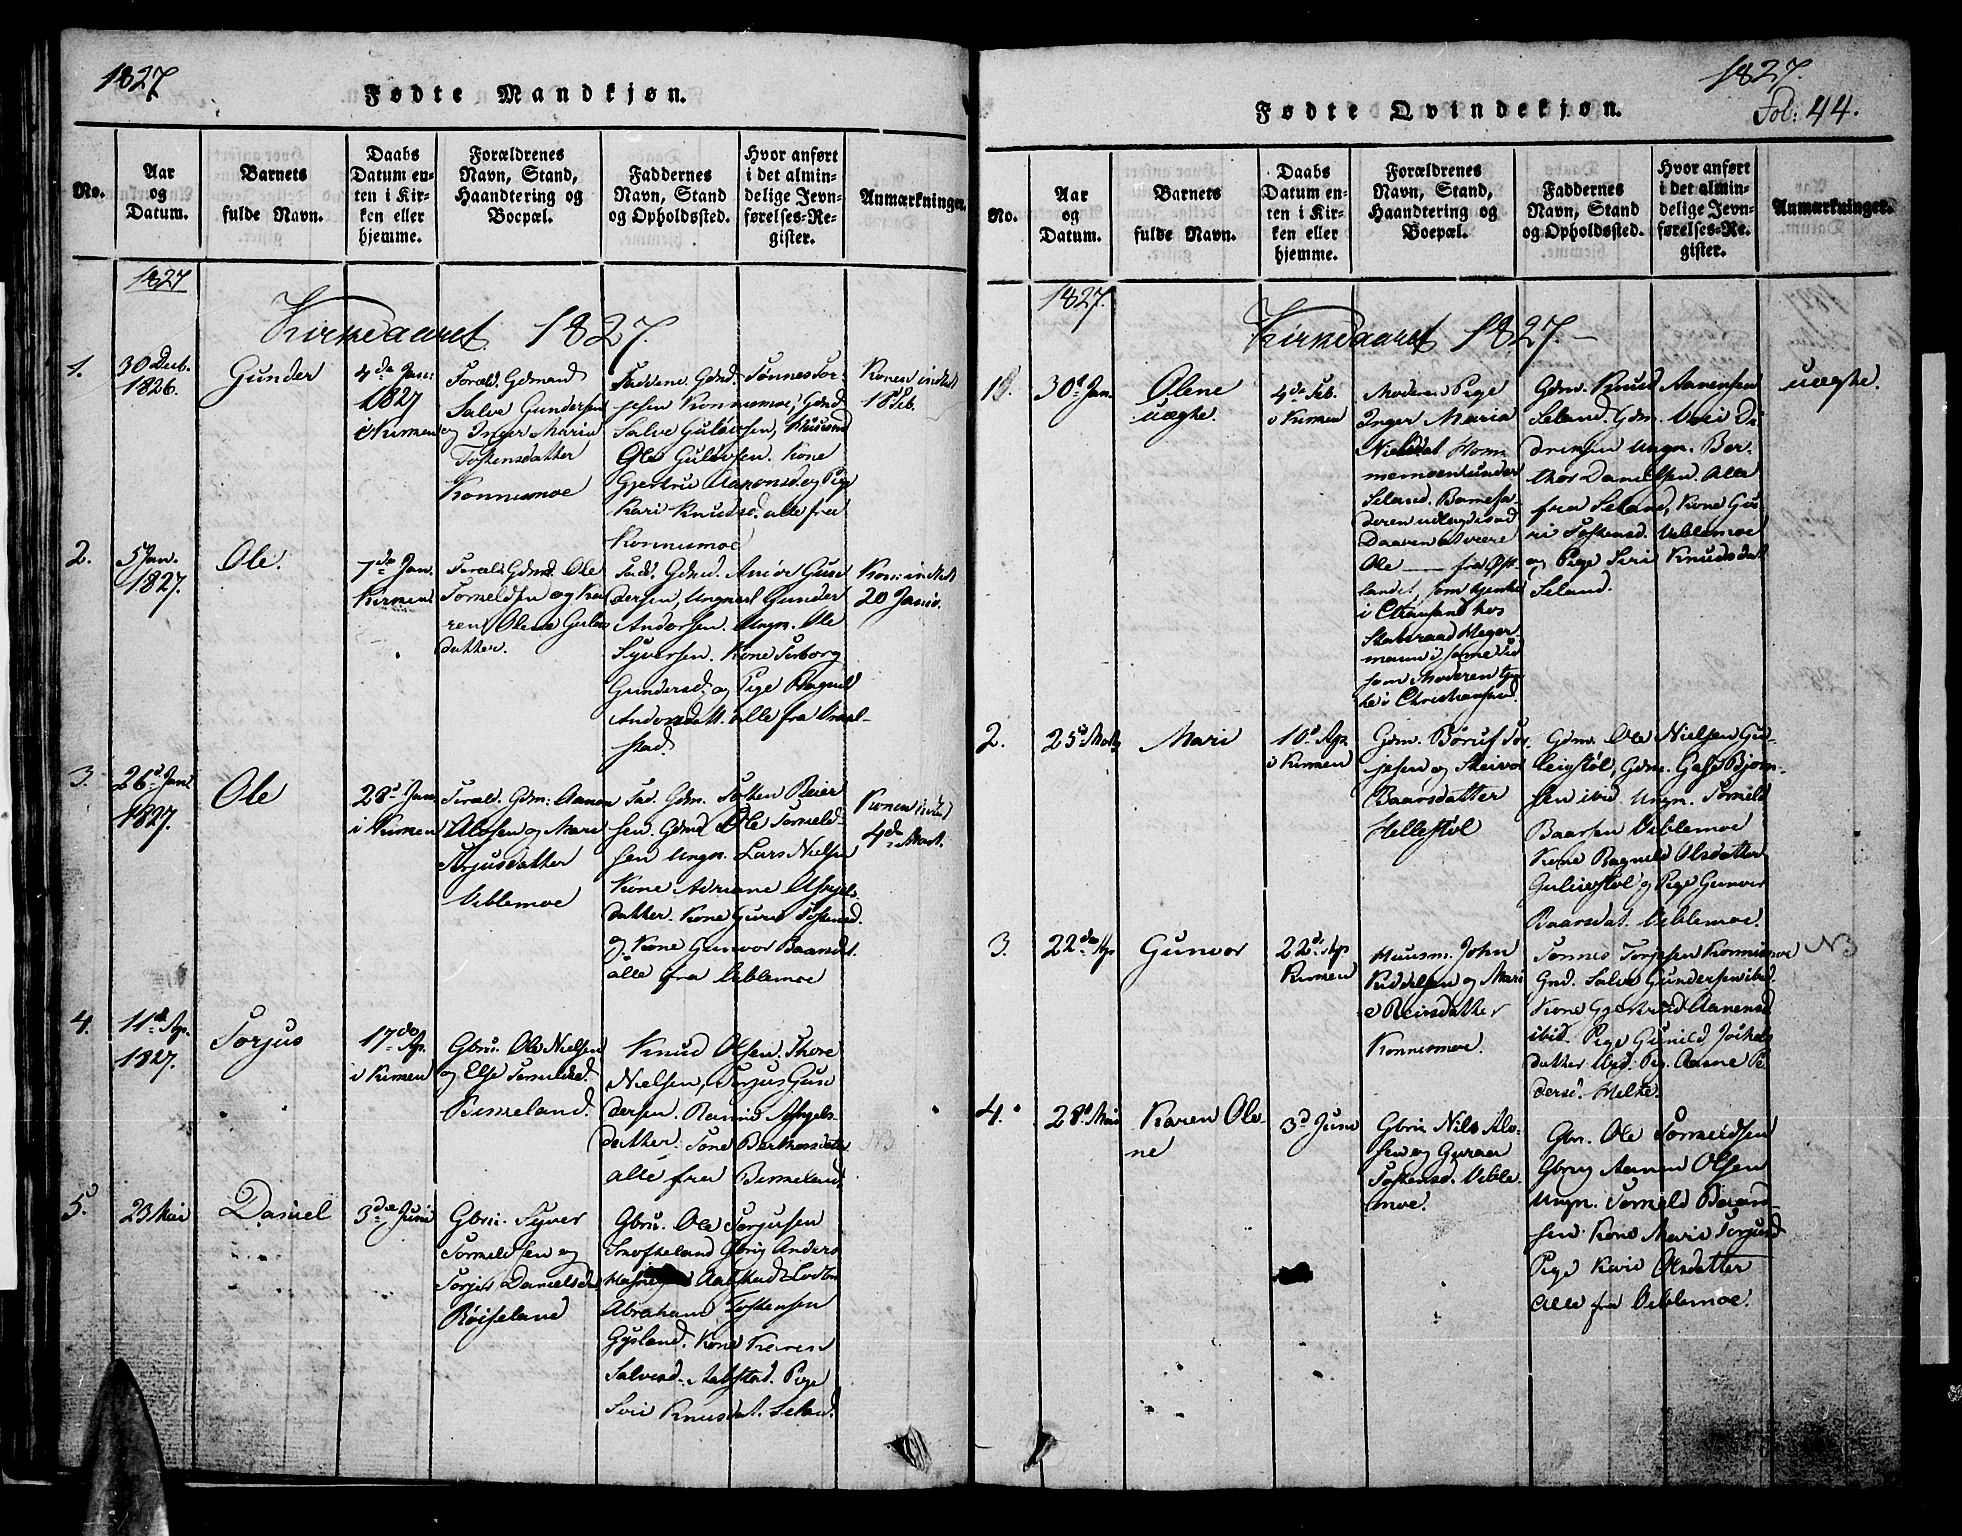 1827
Fødte Mandkjøn.
No.
Aar
og
Datum.
Barnets
fulde Navn.
Daabs
Datum en-
ten i Kir-
ken eller
hjemme.
Forældrenes
Navn, Stand,
Haandtering og
Boepæl.
Faddernes
Navn, Stand
og Opholdssted.
Hvor anført
i det almin-
delige Jevn-
førelses-Re-
gister.
Anmærkninger.
1827
Kirkeaaret 1827.
1.
30 Decb.
1826.
Gunder
4de Jan:
1827
i Kirken
Foræld. Gdmand
Salve Gundersen
og Inger Maria
Tostensdatter
Konnismoe
Faddere Gdmd. Tønnes Tor-
jesen Konnismoe, Gdmd
Salve Gulovsen, Huusmd
Ole Gulovsen. Kone
Gjertrud Aanensd. og Pige
Kari Knudsd. alle fra
Konnismoe
Konen indled
18 Feb.
2.
5 Jan.
1827.
Ole.
7de Jan.
Kirken
Foræld. Gdmd. Ole
Tormodsen og Ka-
ren Olene Gulovs
datter.
Fadd. Gdmd. Anders Gun
dersen, Ungkarl Gunder
Andersen. Ungk. Ole
Syversen. Kone Torborg
Gundersd. og Pige Ragnild
Andersdatt. alle fra
stad.
Kon: indled
20 Janu.
3.
26d Jan
1827.
Ole
28d Jan
i Kirken
Foræld. Gdm: Aanen
Olsen og Mari
Torjusdatter
Viblemoe
Fad. Gdm. Tosten Reier
sen. Gdmd Ole Tormod-
sen Ungk. Lars Nielsen
Kone Adriane Asbjels
datter. Kone Guri Tostensd.
og Kone Gunvor Baarsdat.
alle fra Viblemoe
Konen indled
4de Mart.
4.
11te Ap.
1827.
Torjus
17de Ap.
i Kirken
Gbru. Ole Nielsen
og Else Tormodsd.
Birkeland.
Knud Olsen. Thore
Nielsen, Torjus Gun
dersen. Ranni Asbjels-
datter. Tone Berthesdatter
alle fra Birkeland.
5.
23 Mai
Daniel
3die Juni
Gbru. Syver
Tormodsen og
Torjer Danielsdat
Røiseland
Gbru. Ole Torjusen
Gbrug Anders
Aabstad
Abraham Tostensen
Gysland. Kone Karen
Salvesd. Aabstad. Pige
Siri Knudsdat. Seland.
1827.
Fol: 44.
Fødte Qvindekjøn.
No.
Aar
og
Datum.
Barnets
fulde Navn.
Daabs
Datum en-
ten i Kir-
ken eller
hjemme.
Forældrenes
Navn, Stand,
Haandtering og
Boepæl.
Faddernes
Navn, Stand
og Opholdssted.
Hvor anført
i det almin-
delige Jevn-
førelses-Re-
gister.
Anmærkninger.
1827.
Kirkeaaret 1827.
1.
30d Jan.
Olene
uægte.
4de Feb.
i Kirken
Moderen Pige
Inger Maria
Nielsdat. Hom-
memoen under
Seland. Barnefa-
deren udlagdes ved
Daaben at være
Ole — fra Øst-
landet, som tjente
i Chransand hos
Statsraad Heger-
mann i same Tid
som Moderen tjen-
te i Christiansand.
Gdm. Knud Aanensen
Seland. Gdm. Uvei Di
driksen Ungk. Ber-
thor Danielsen. Alle
fra Seland, Kone Gu-
ri Tostensd. Viblemoe
og Pige Siri Knudsdat
Seland.
uægte.
2.
25d Marts
Mari
10d Ap.
i Kirken
Gdm. Børuf Tor-
jesen og Skeivor
Baarsdatter
Hellestøl
Gdm. Ole Nielsen Gu-
leiestøl, Gdm. Jesp Bjørn-
sen ibid. Ungk. Tormod
Baarsen Viblemoe
Kone Ragnild Olsdatter
Guleiestøl og Pige Gunvor
Baarsdat. Viblemoe.
3.
22de Ap
Gunvor
22d Ap.
Kirken
Huusm. John
Kiddelsen og Mari
e Reiersdatter
Konnismoe.
Tønnes Torjesen Konnismoe
Gmd. Salve Gundersen ibid.
Kone Gjertrud Aanensd
ibid. Pige Gunild
datter ibid. Pig. Aanne Pe
dersd. Helle.
NB
4.
28d Mai
Karen Ole-
ne
3d Juni
Gbru Nils Alv-
sen og Guroe
Tostensd. Vible
moe.
Gbr. Ole Tormodsen
Gbrug Aanen Olsen
Ungk. Tormod Baar
sen. Kone Mari Torjusd
Pige Kari Olsdatter
alle fra Viblemoe.